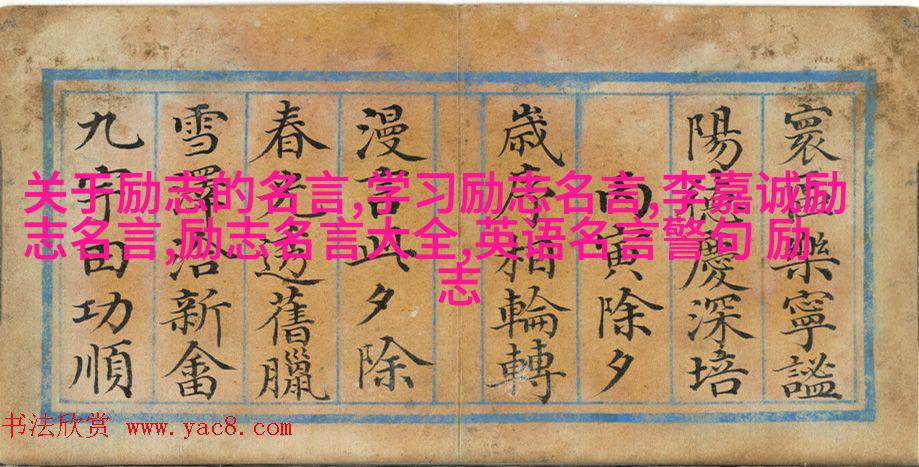 寰區樂寧謐
陽德慶深培
丙寅除夕
歲序相輪轉
漫言此夕除
春光透舊臘
雪澤洽新畬
九宇田功順
关于励志的名言,学习励志名言,李嘉诚励
志名言,励志名言大全,英语名言警句 励
志
书法欣赏 www.yac8.com